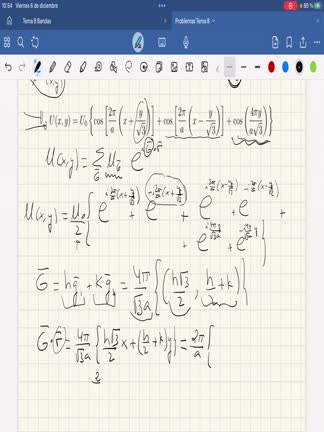 10:54 Viernes 6 de diciembre
89 %
Tema 8 Bandas
Problemas Tema 8
U(x,y) = U₀ { cos [ 2π/a ( x + y/√3 ) ] + cos [ 2π/a ( x − y/√3 ) ] + cos ( 4πy/(a√3) ) }
U(x,y) = Σ_G̅ U_G̅ e^{i G̅·r̅}
U(x,y) = U₀/2 { e^{i 2π/a (x + y/√3)} + e^{-i 2π/a (x + y/√3)} + e^{i 2π/a (x − y/√3)} + e^{-i 2π/a (x − y/√3)} +
+ e^{i 4πy/(√3a)} + e^{-i 4πy/(√3a)} }
G̅ = h g̅₁ + k g̅₂ = 4π/(√3a) { ( h√3/2 , h/2 + k ) }
G̅·r̅ = 4π/(√3a) { h√3/2 x + ( h/2 + k ) y } = 2π/a {